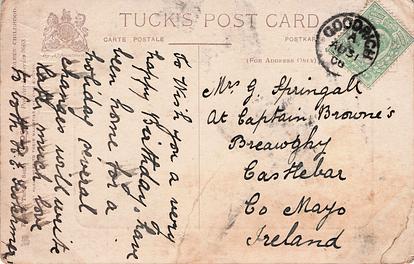 TUCK'S POST CARD
CARTE POSTALE
POSTKARTE
(FOR ADDRESS ONLY)
GOODRICH
A
AU 31
06
To Wish you a very
happy Birthday, have
been home for a
holiday several
changes will write
later, much love
to both
Mrs G. Springall
At Captain Browne's
Breawghy
Castlebar
Co Mayo
Ireland